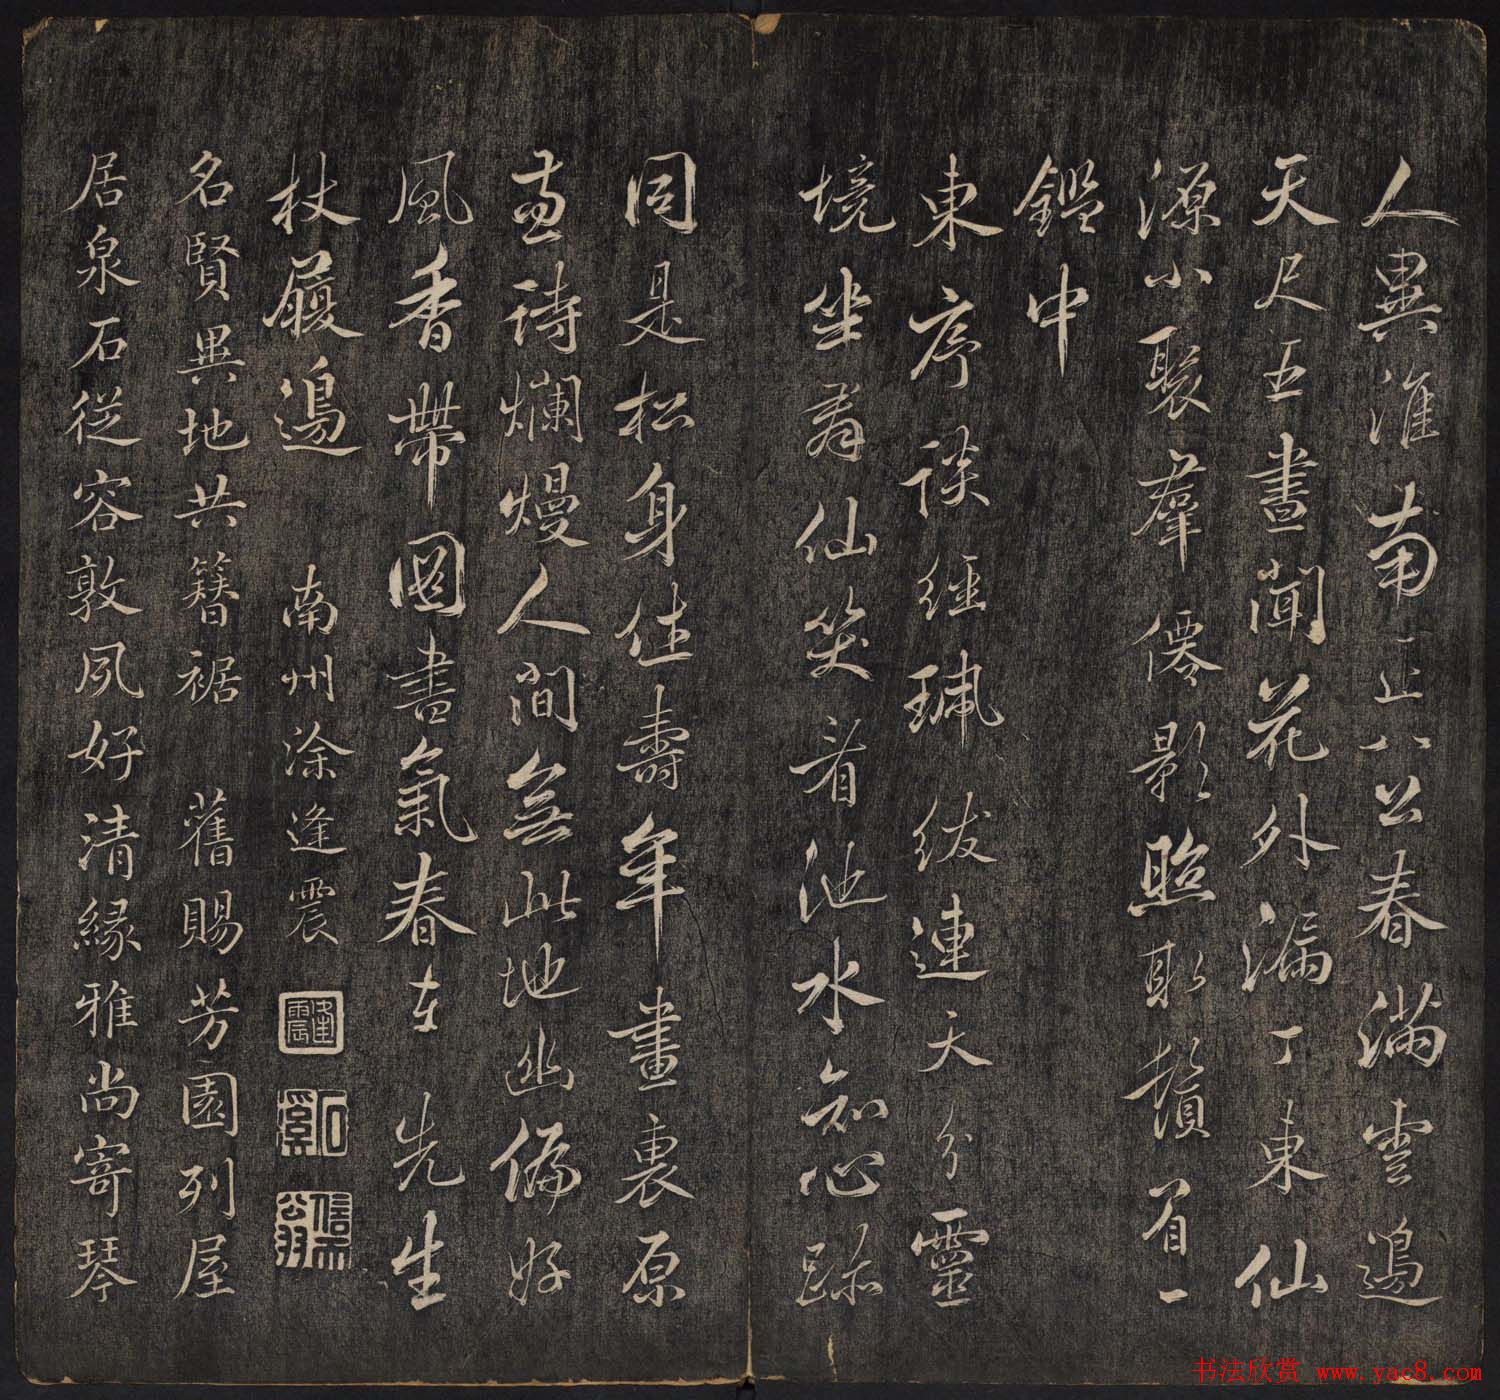 人異淮南正八公春滿雲邊
天尺五晝聞花外漏丁東仙
源小聚羣僊影照取鬚眉一
鑑中
東序談經珮紱連天分靈
境坐仙笑看池水知心跡
同是松身住壽年畫裏原
詩爛熳人間無此地幽偏好
風香帶圖書氣春在先生
杖履邊 南州涂逢震
逢震
石溪
名賢異地共簪裾 舊賜芳園列屋
居泉石從容敦夙好清緣雅尚寄琴
书法欣赏 www.yac8.com